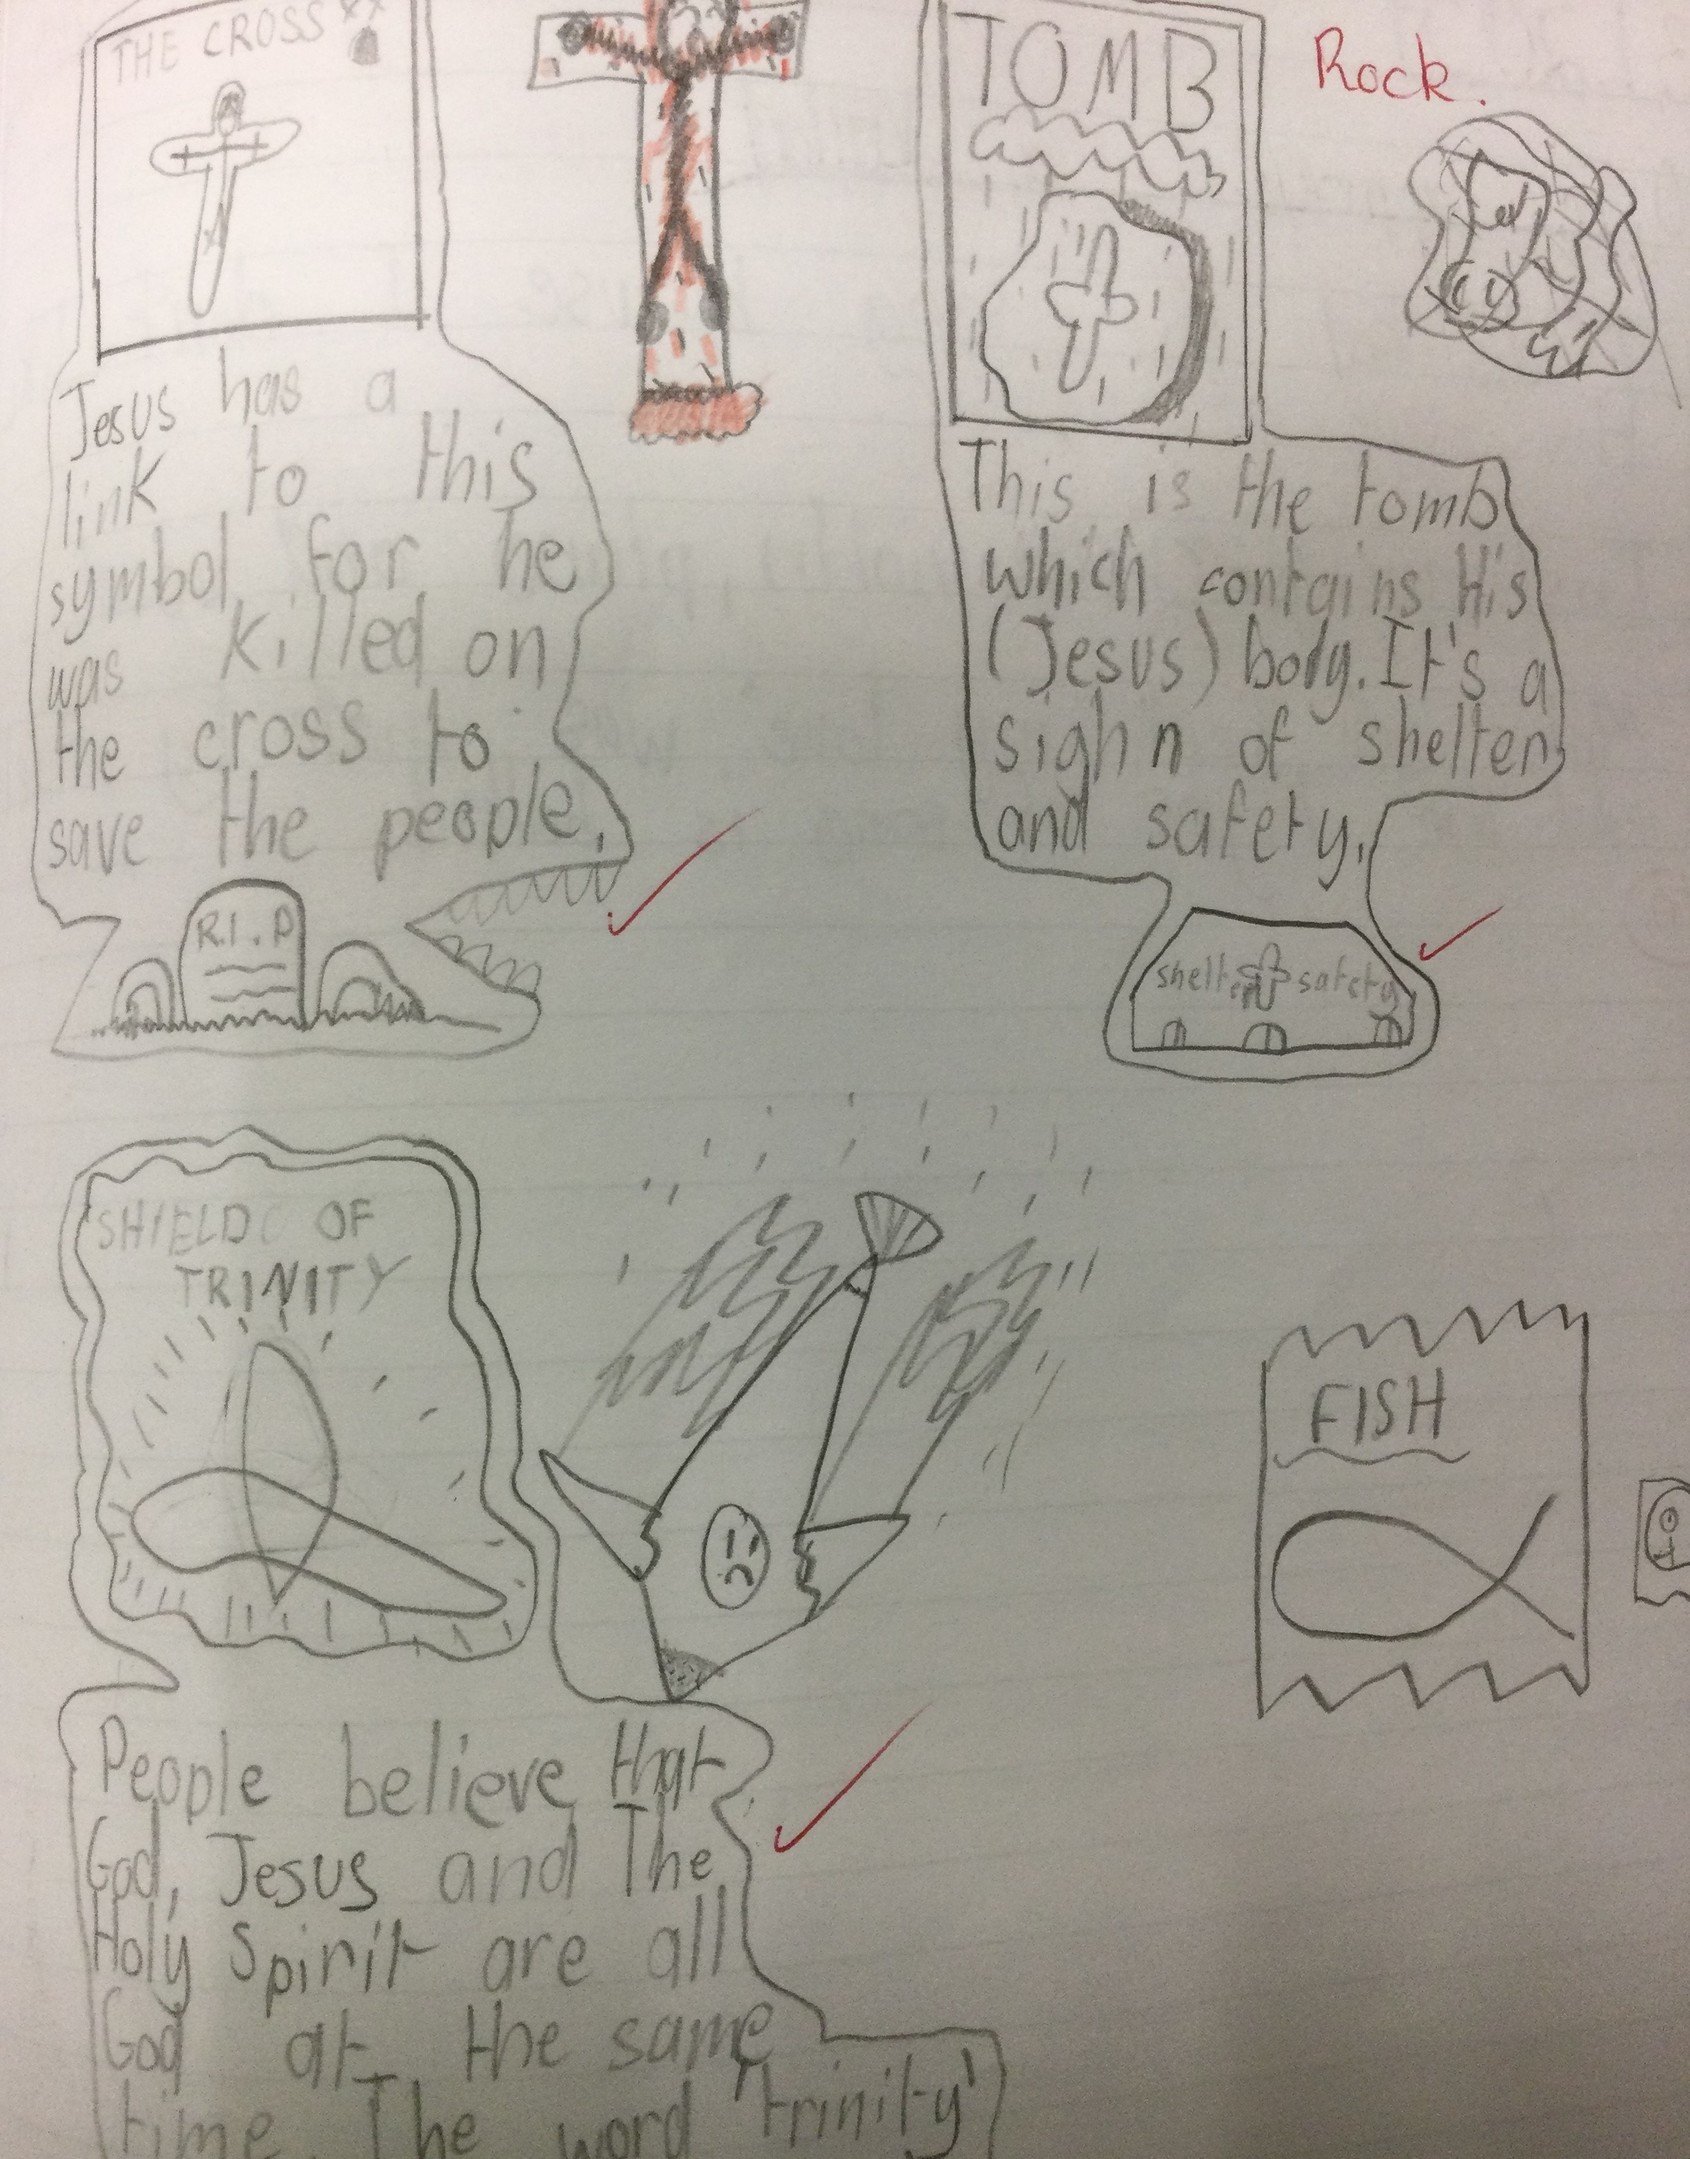 THE CROSS
Jesus has a
link to this
symbol for he
was killed on
the cross to
save the people.
R.I.P
TOMB
Rock.
This is the tomb
which contains His
(Jesus) body. It's a
sighn of shelter
and safety.
shelter safety
SHIELD OF
TRINITY
People believe that
God, Jesus and The
Holy Spirit are all
God at the same
time. The word 'trinity'
FISH